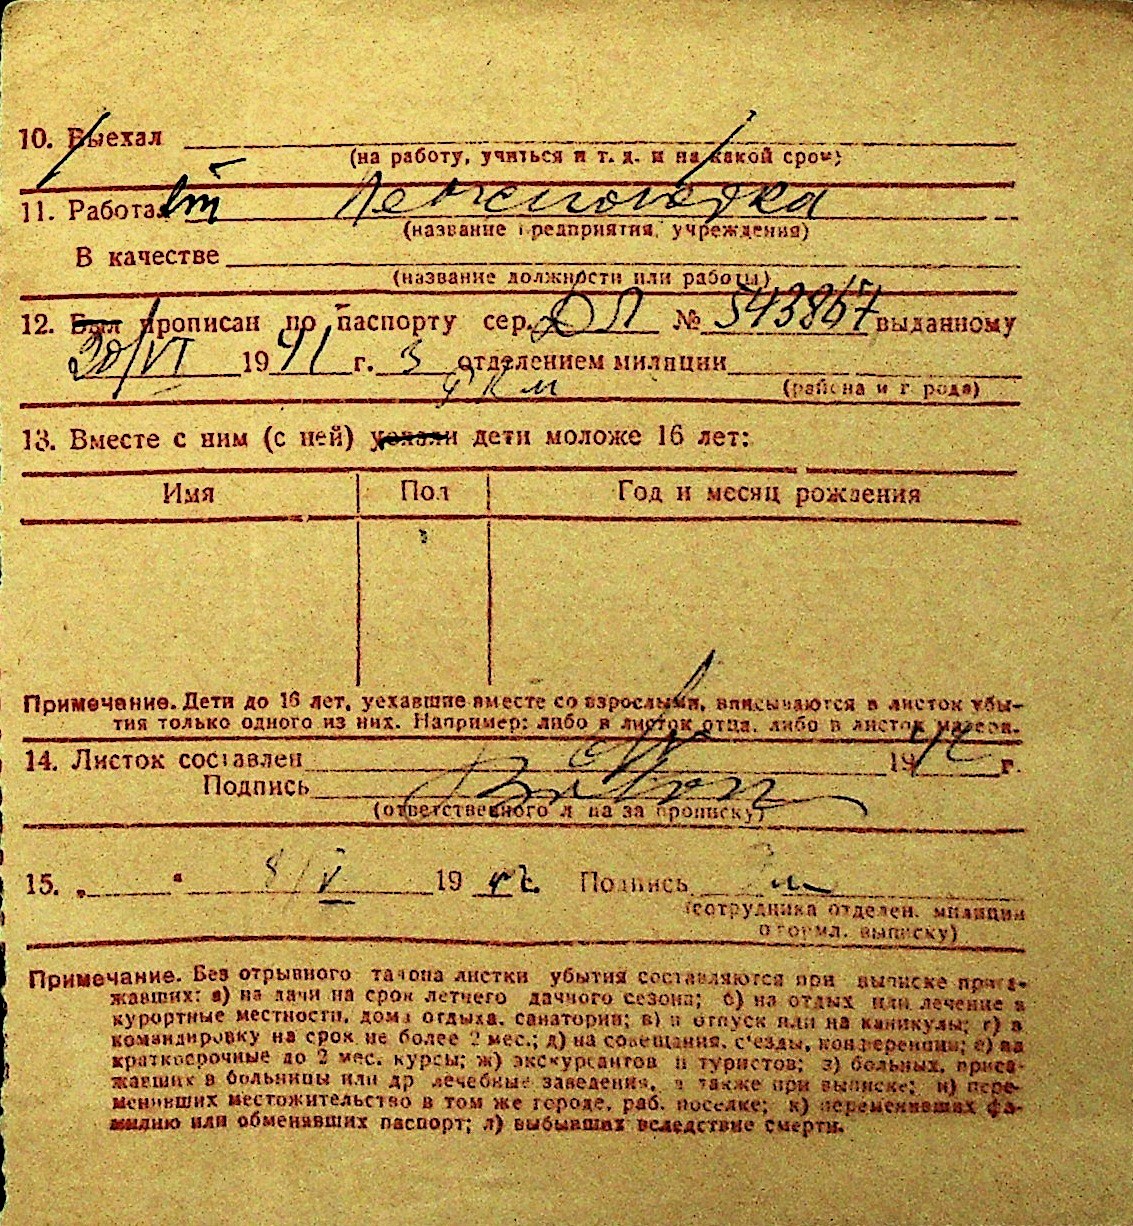 10. Выехал
(на работу, учиться и т. д. и на какой срок)
11. Работа
(название предприятия, учреждения)
В качестве
(название должности или работы)
12. Был прописан по паспорту сер. № 543867 выданному
30/VI 1941 г. 3 отделением милиции
(района и города)
13. Вместе с ним (с ней) уехали дети моложе 16 лет:
Имя Пол Год и месяц рождения
Примечание. Дети до 16 лет, уехавшие вместе со взрослыми, вписываются в листок убы-
тия только одного из них. Например: либо в листок отца, либо в листок матери.
14. Листок составлен 1942 г.
Подпись
(ответственного лица за прописку)
15. „ “ 8/V 1942 Подпись
(сотрудника отделен. милиции
оформл. выписку)
Примечание. Без отрывного талона листки убытия составляются при выписке приез-
жавших: а) на дачи на срок летнего дачного сезона; б) на отдых или лечение в
курортные местности, дома отдыха, санатории; в) в отпуск или на каникулы; г) в
командировку на срок не более 2 мес.; д) на совещания, с'езды, конференции; е) на
краткосрочные до 2 мес. курсы; ж) экскурсантов и туристов; з) больных, приез-
жавших в больницы или др лечебные заведения, а также при выписке; и) пере-
менивших местожительство в том же городе, раб. поселке; к) переменивших фа-
милию или обменявших паспорт; л) выбывших вследствие смерти.